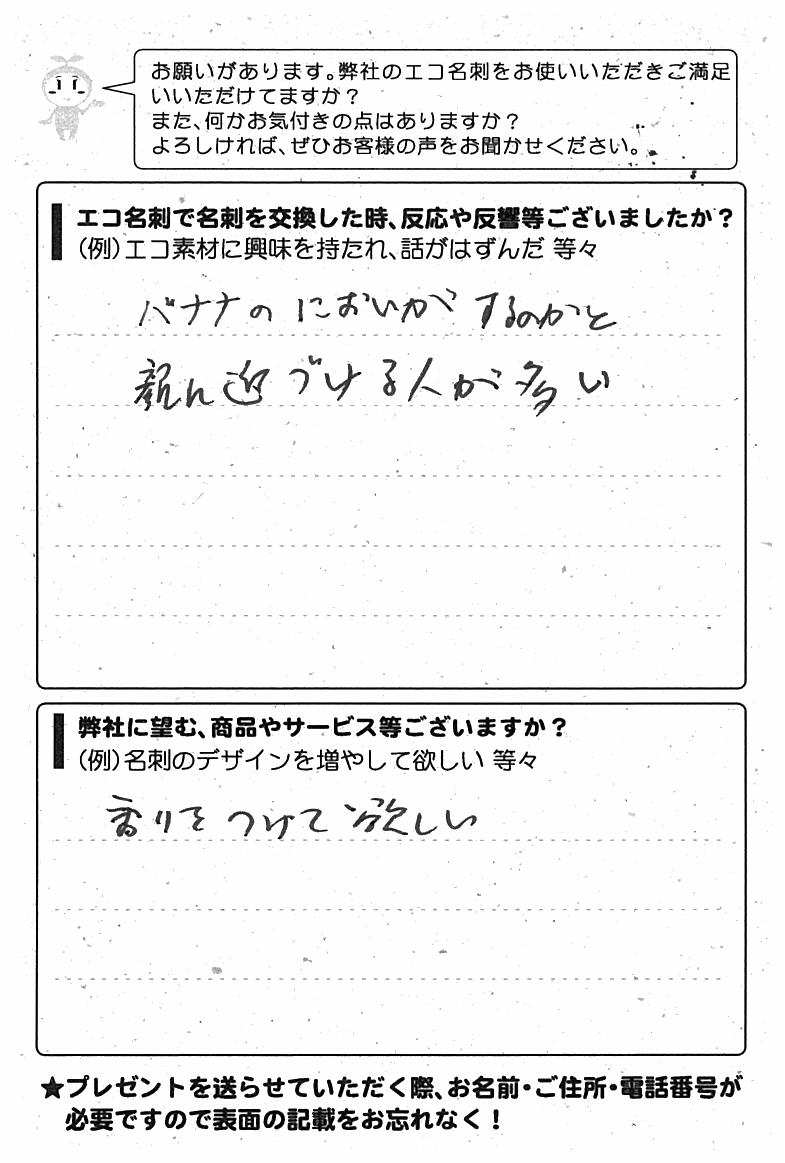 お願いがあります。弊社のエコ名刺をお使いいただきご満足
いいただけてますか？
また、何かお気付きの点はありますか？
よろしければ、ぜひお客様の声をお聞かせください。
エコ名刺で名刺を交換した時、反応や反響等ございましたか？
（例）エコ素材に興味を持たれ、話がはずんだ 等々
バナナのにおいがするのかと
近づける人が多い
弊社に望む、商品やサービス等ございますか？
（例）名刺のデザインを増やして欲しい 等々
香りをつけて欲しい
★プレゼントを送らせていただく際、お名前・ご住所・電話番号が
必要ですので表面の記載をお忘れなく！